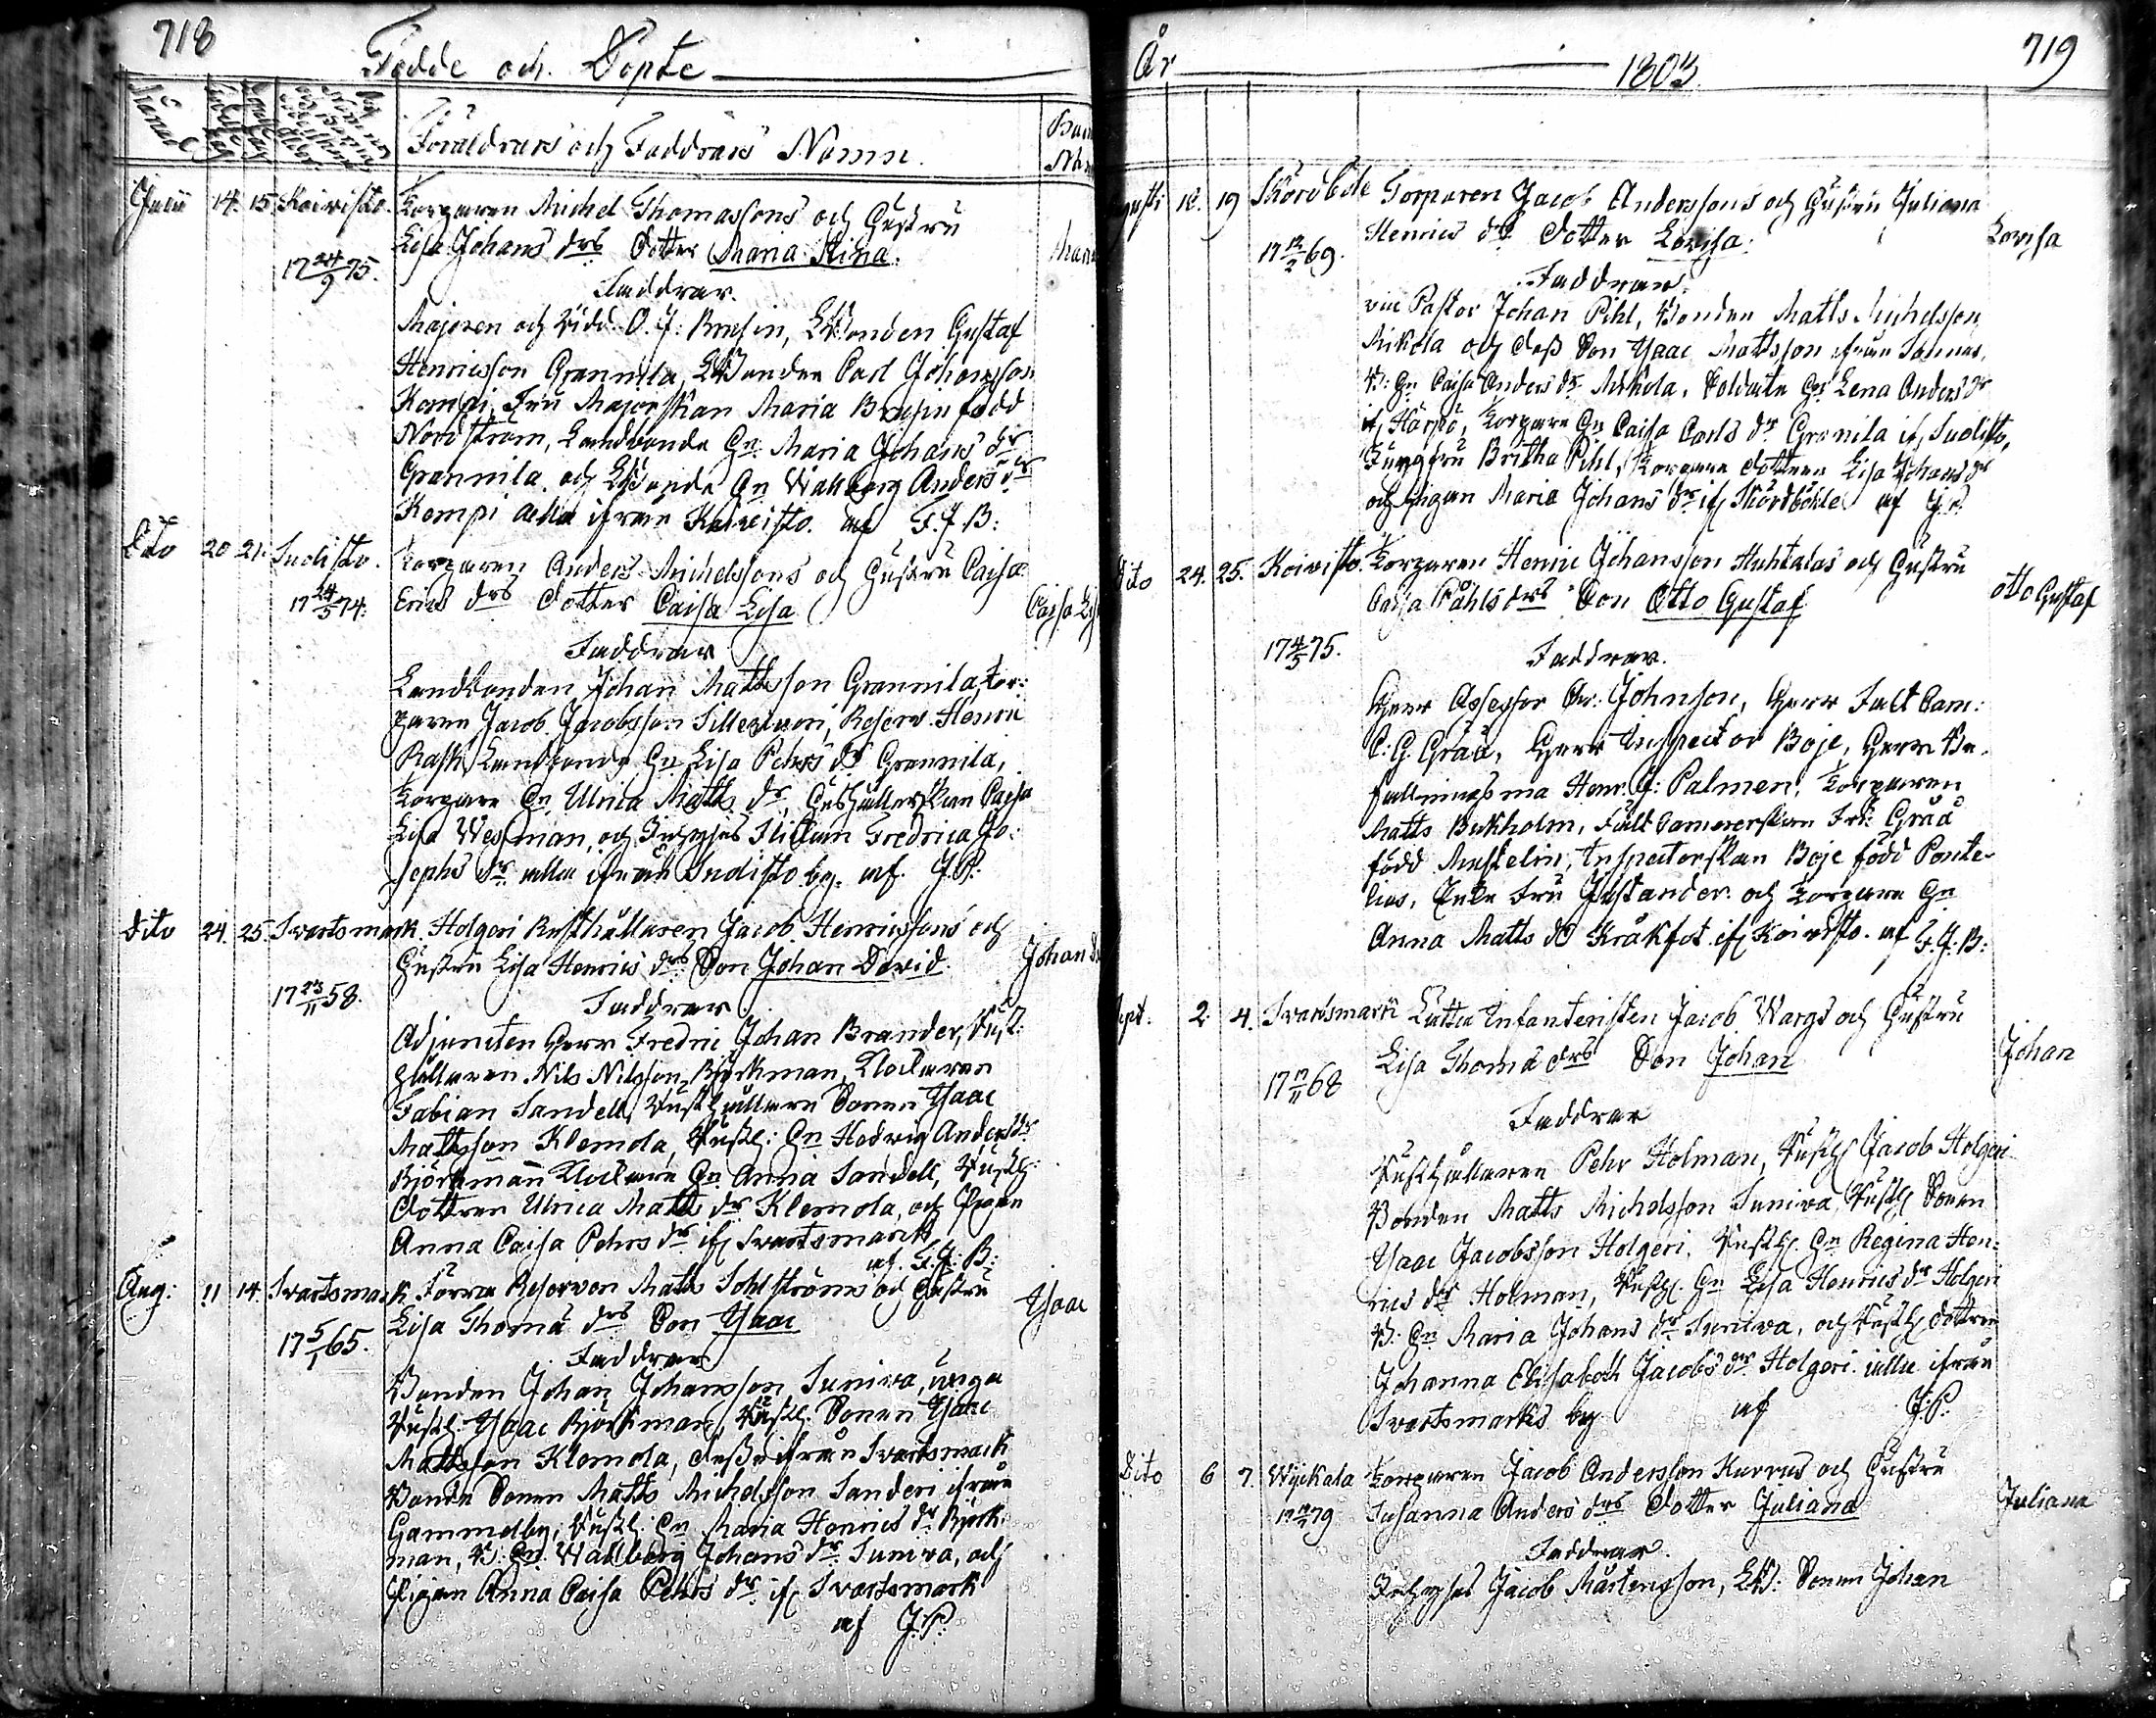 718
Födde och Döpte
Föräldrars och Faddrars Namn.
Julii 14. 15. Koivisto. Torparen Michel Thomassons och Hustru
Lisa Johans drs Dotter Maria Stina.
17 24/9 75.
Faddrar.
Majoren och Ridd. O. J: Brusin, LBonden Gustaf
Henricsson Grannila, LBonden Carl Johansson
Kompi, Fru Majorskan Maria Brusin född
Nordström, Landbonde Hn Maria Johans dr
Grannila, och LBonde Hn Wallborg Anders dr
Kompi alla ifrån Koivisto. af F. J. B:
Dito 20 21. Suolisto. Torparen Anders Michelssons och Hustru Caisa
Erics drs Dotter Caisa Lisa
Caisa Lis
17 24/5 74:
Faddrar
Landbonden Johan Mattsson Grannila, Tor:
paren Jacob Jacobsson Sillanvori, Reserv. Henric
Rask, Landbonde Hn Lisa Pehrs dr Grannila,
Torpare Hn Ulrica Matts dr, Hushållerskan Caisa
Lisa Wesman, och Inhyses Flickan Fredrica Jo:
sephs dr alla ifrån Suolisto by. af J. P.
Dito 24. 25. Svartsmark. Holgeri Rusthållaren Jacob Henricssons och
Hustru Lisa Henrics drs Son Johan David.
Johan D
17 23/11 58.
Faddrar
Adjuncten Herr Fredric Johan Brander, Rust:
hållaren Nils Nilsson Björkman, Klockaren
Fabian Sandell, Rusthållare Sonen Ysaac
Mattsson Klemola, Rusth: Hn Hedvig Anders dr
Björkman Klockare Hn Anna Sandell, Rusth:
dottren Ulrica Matts dr Klemola, och Pigan
Anna Caisa Pehrs dr if Svartsmark
af. F. J: B:
Aug: 11 14. Svartsmark. Förra Reserven Matts Sohlströms och Hustru
Lisa Thomæ drs Son Ysaac
Ysaac
17 5/1 65.
Faddrar
Bonden Johan Johansson Suniva, unga
Rusth. Ysaac Björkman, Rusth. Sonen Ysaac
Mattsson Klemola, dessa ifrån Svartsmark
Bonde Sonen Matts Michelsson Sanderi ifrån
Gammelby, Rusth: Hn Maria Henrics dr Björk:
man, B: Hn Wallborg Johans dr Suniva, och
Pigan Anna Caisa Pehrs dr if Svartsmark
af J. P.
År 1803. 719
gusti 18. 19 Skördböle Torparen Jacob Anderssons och Hustru Juliana
Henrics drs Dotter Lovisa:
Lovisa
17 12/2 69.
Faddrar.
vic Pastor Johan Pihl, Bonden Matts Michelsson
Mikola och dess Son Ysaac Mattsson ifrån
B: Hn Caisa Anders dr Mikola, Soldate Hn Lena Anders dr
if Härpö, Torpare Hn Caisa Carls dr Grannila if Suolisto,
Jungfru Britha Pihl, Torpare dottren Lisa Johans dr
och pigan Maria Johans dr if Skördböle af J. P.
Dito 24. 25. Koivisto. Torparen Henric Johansson Huhtalas och Hustru
Caisa Påhls drs Son Otto Gustaf
Otto Gustaf
17 4/5 75.
Faddrar.
Herr Assessor Johnson, Herr Fält Cam:
C: G. Gråå, Herr Inspector Boje, Herr Be:
fallningsma Henr. J: Palmen, Torparen
Matts Bukholm, Fält Camererskan Fru Gråå
född Mustelin, Inspectorskan Boje född Ponte-
lius, Enke Fru Justander och Torpare Hn
Anna Matts dr Kråkfot if Koivisto. af F. J. B:
Sept. 2 4. Svartsmark Lätta Infanteristen Jacob Wargs och Hustru
Lisa Thomæ drs Son Johan
Johan
17 /11 68
Faddrar
Rusthållaren Pehr Holman, Rusth Jacob Holgeri
Bonden Matts Michelsson Suniva, Rusth Sonen
Ysaac Jacobsson Holgeri, Rusth. Hn Regina Hen=
rics dr Holman, Rusth. Hn Lisa Henrics dr Holgeri
B: Hn Maria Johans dr Suniva, och Rusth dottren
Johanna Elisabeth Jacobs dr Holgeri alla ifrån
Svartsmarks by af J. P.
Dito 6 7. Wyckala Torparen Jacob Andersson Kurrus och Hustru
Susanna Anders drs Dotter Juliana
Juliana
Faddrar.
Inhyses Jacob Mårtensson, LB: Sonen Johan